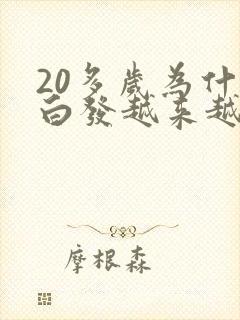 20多歲為什
白發越来越
摩根森